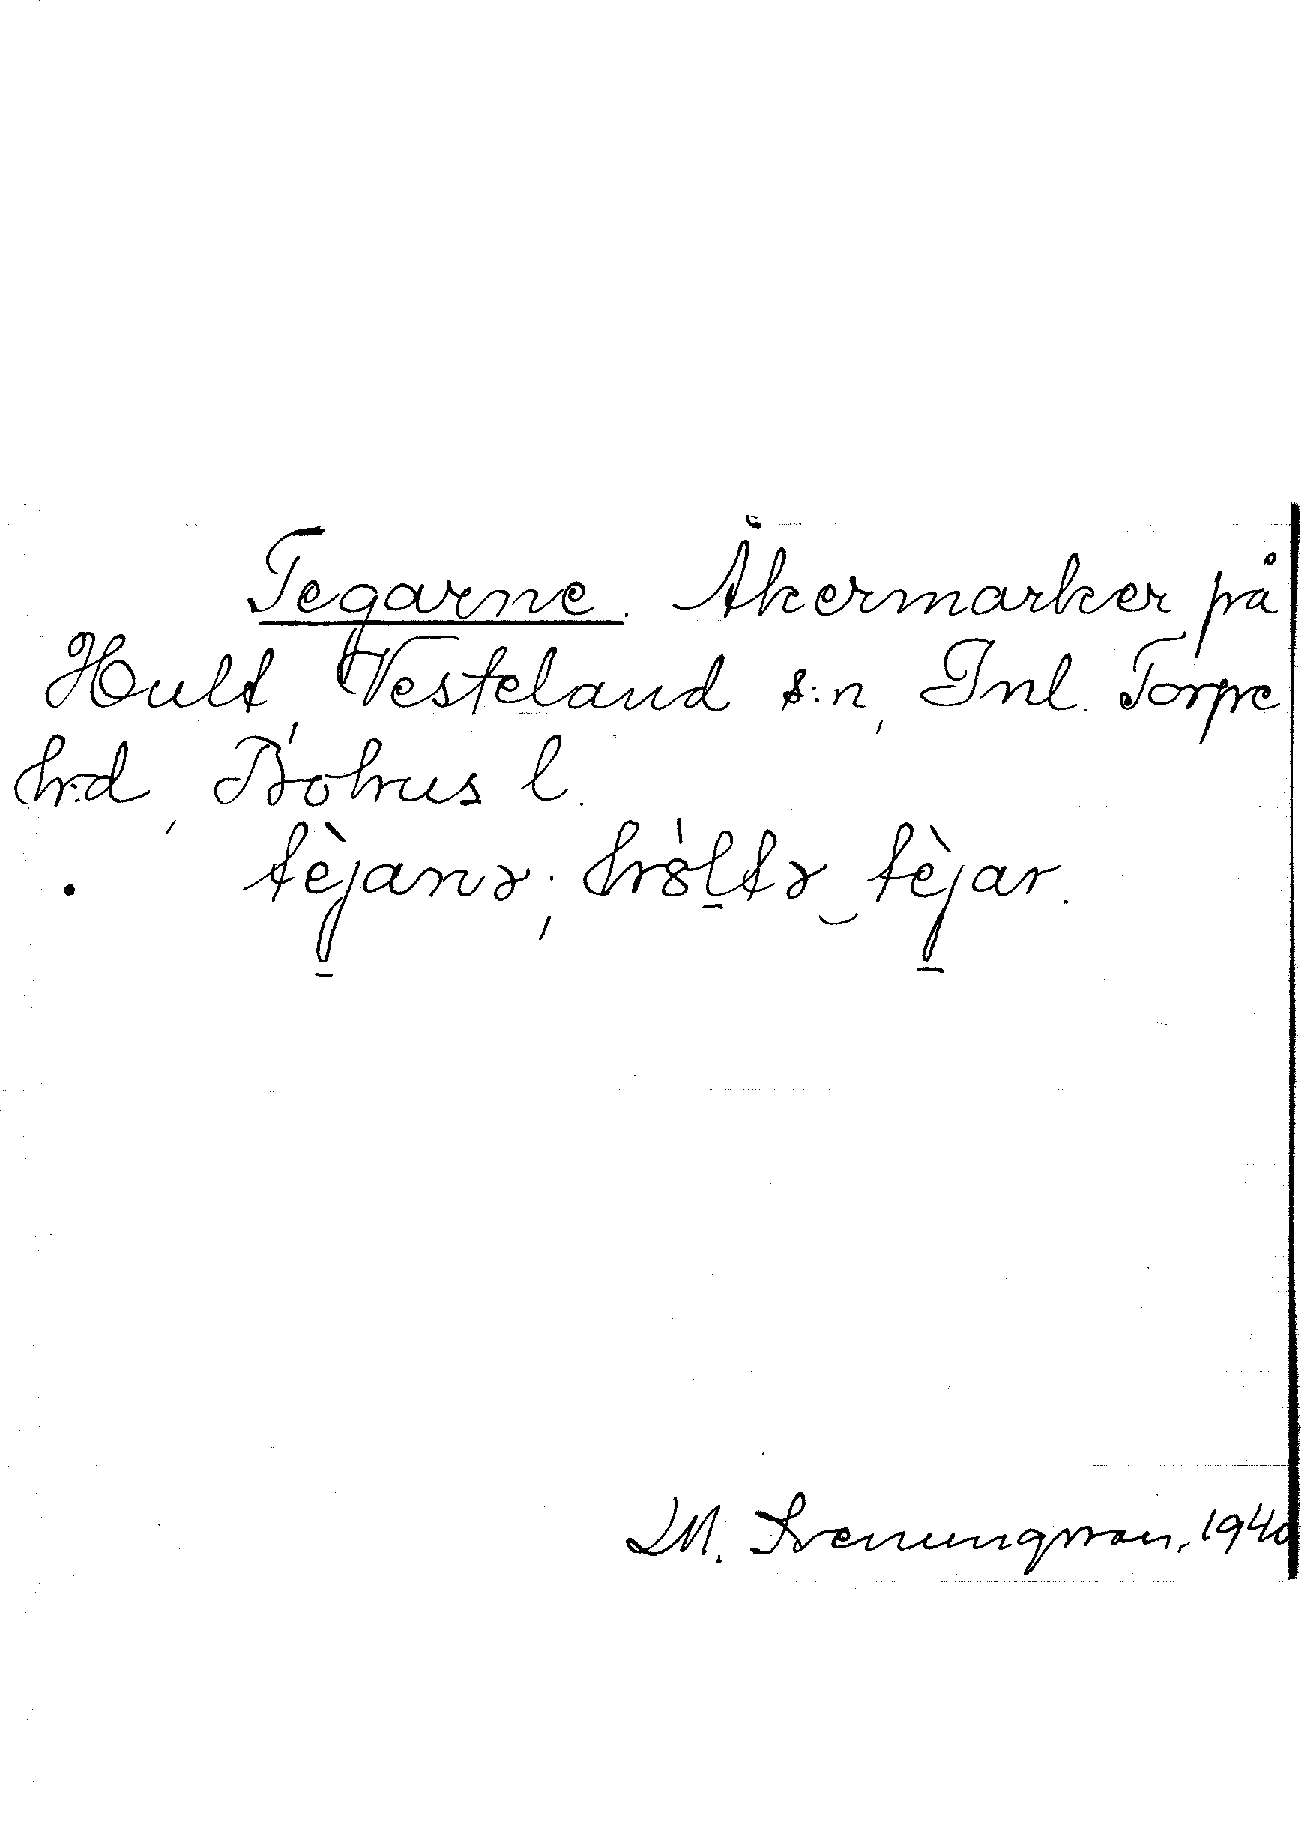 Tegarne. Åkermarker på
Hult, Vesteland s:n, Inl. Torpe
hr:d, Bohus l.
tèjanə; hò̤ltə‿tèjar.
M. Svenungsson, 1940